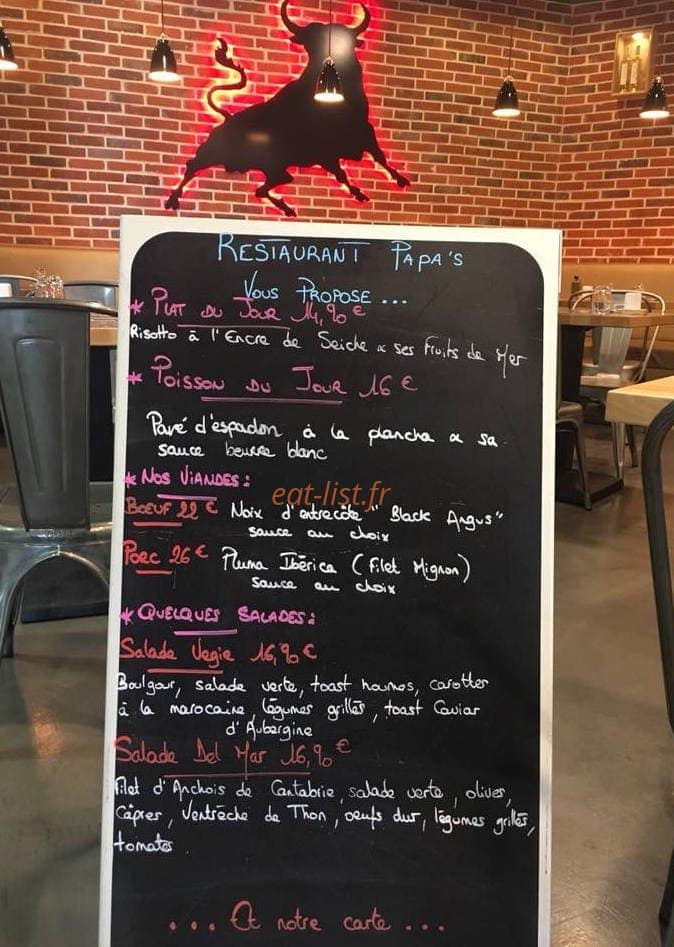 RESTAURANT PAPA'S
VOUS PROPOSE ...
* PLAT DU JOUR 14,90 €
Risotto à l'Encre de Seiche & ses Fruits de Mer
* POISSON DU JOUR 16 €
Pavé d'espadon à la plancha & sa
sauce beurre blanc
* NOS VIANDES :
eat-list.fr
BOEUF 22 € Noix d'entrecôte " Black Angus"
sauce au choix
PORC 26 € Pluma Ibérica (Filet Mignon)
sauce au choix
* QUELQUES SALADES :
Salade Vegie 16,90 €
Boulgour, salade verte, toast houmos, carotter
à la marocaine, légumes grillés, toast Caviar
d'Aubergine
Salade Del Mar 16,90 €
Filet d'Anchois de Cantabrie, salade verte, olives,
Câpres, Ventrèche de Thon, oeufs dur, légumes grillés,
tomates
... Et notre carte ...